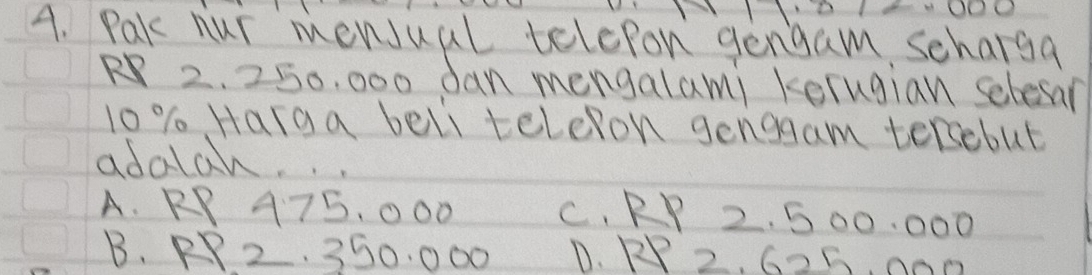 4. Pak nur menjual telepon gengam seharga
RP 2.250.000 dan mengalami kerugian sebesar
10% Harga beli telepon genggam tersebut
adalah...
A. RP 475.000 C. RP 2.500.000
B. RP 2.350.000 D. RP 2.625.000